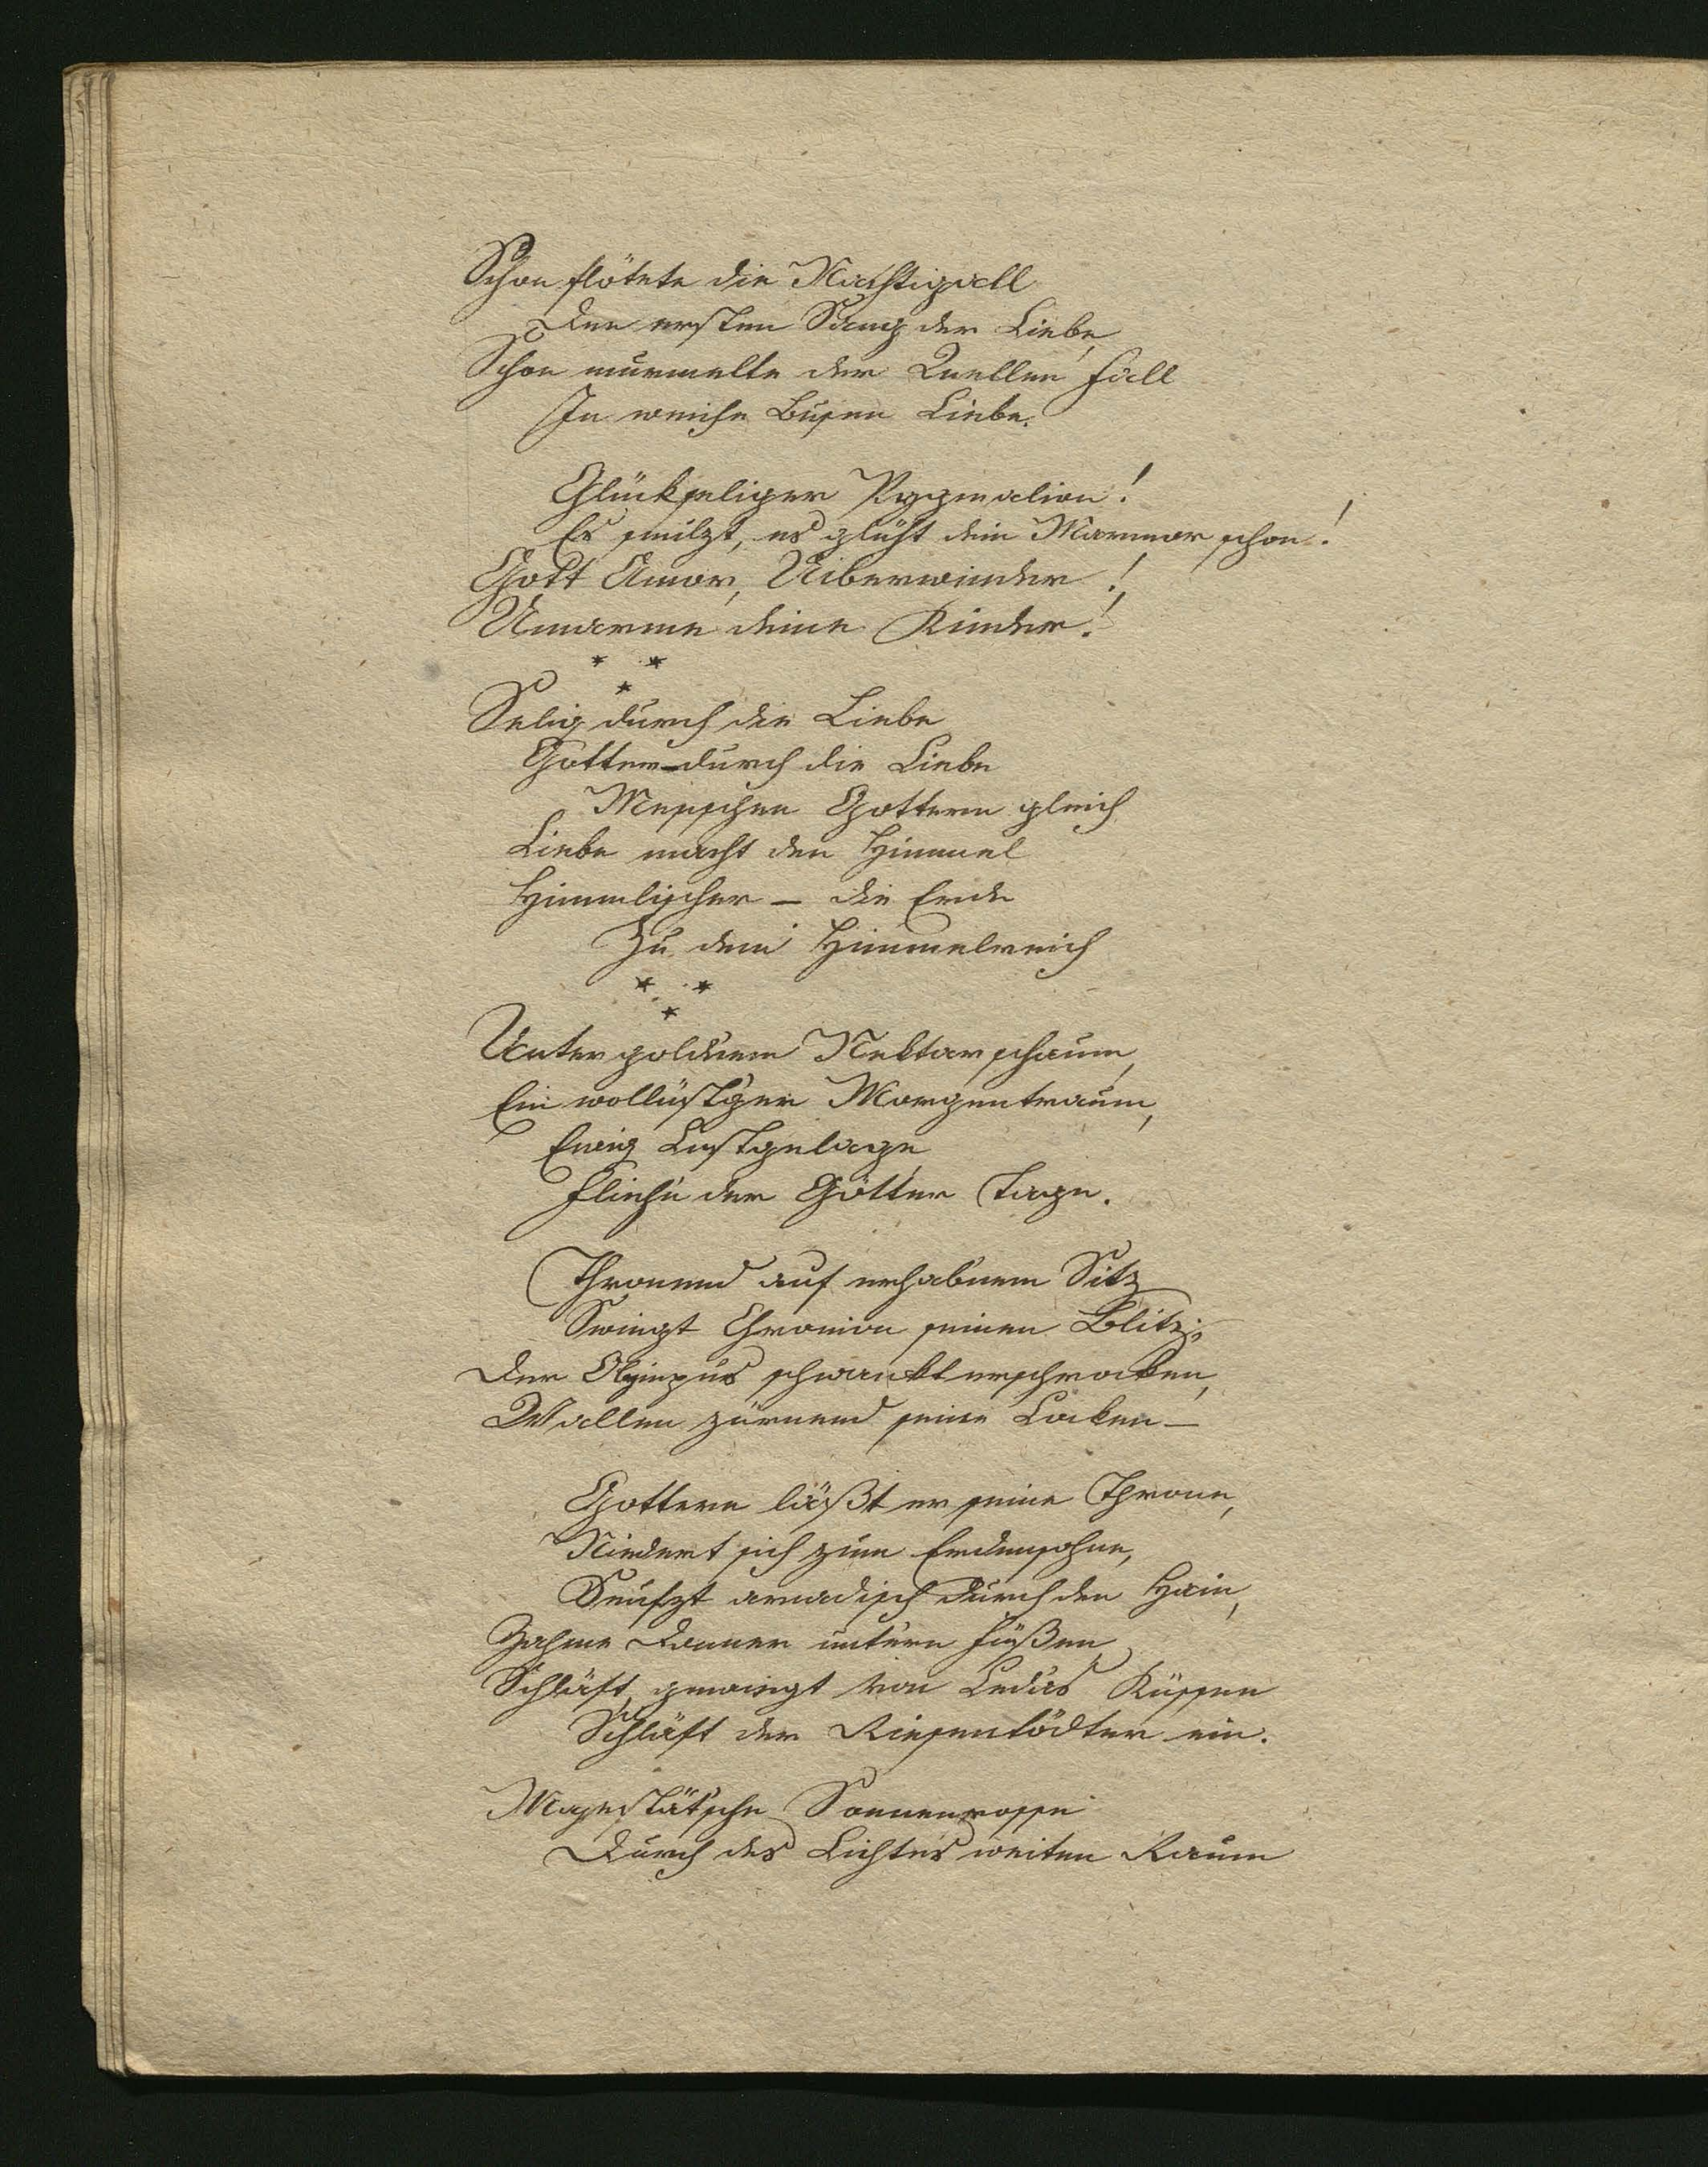 Schon flötete die Nachtigall
Den ersten Sang der Liebe,
Schon murmelte der Quellen Fall
In weiche Busen Liebe.
Glückseliger Pygmalion!
Es smilzt, es glüht dein Marmor schon!
Gott Amor, Uiberwinder!
Umarme deine Kinder!
* *
*
Selig durch die Liebe
Gotter – durch die Liebe
Menschen Gottern gleich
Liebe macht den Himmel
Himmlischer – die Erde
Zu dem Himmelreich
* *
*
Unter goldnem Nektarschaum,
Ein wollüst'ger Morgentraum,
Ewig Lustgelage
Fliehn der Götter Tage.
Thronend auf erhabnem Sitz
Swingt Chronion seinen Blitz;
Der Olympus schwankt erschrocken,
Wallen zürnend seine Locken –
Gottern läßt er seine Throne,
Niedert sich zum Erdensohne,
Seufzt arcadisch durch den Hain,
Zahme Donner untern Füßen
Schläft, gewiegt von Ledas Küssen
Schläft der Riesentödter ein.
Majestät'sche Sonnenrosse
Durch des Lichtes weiten Raum